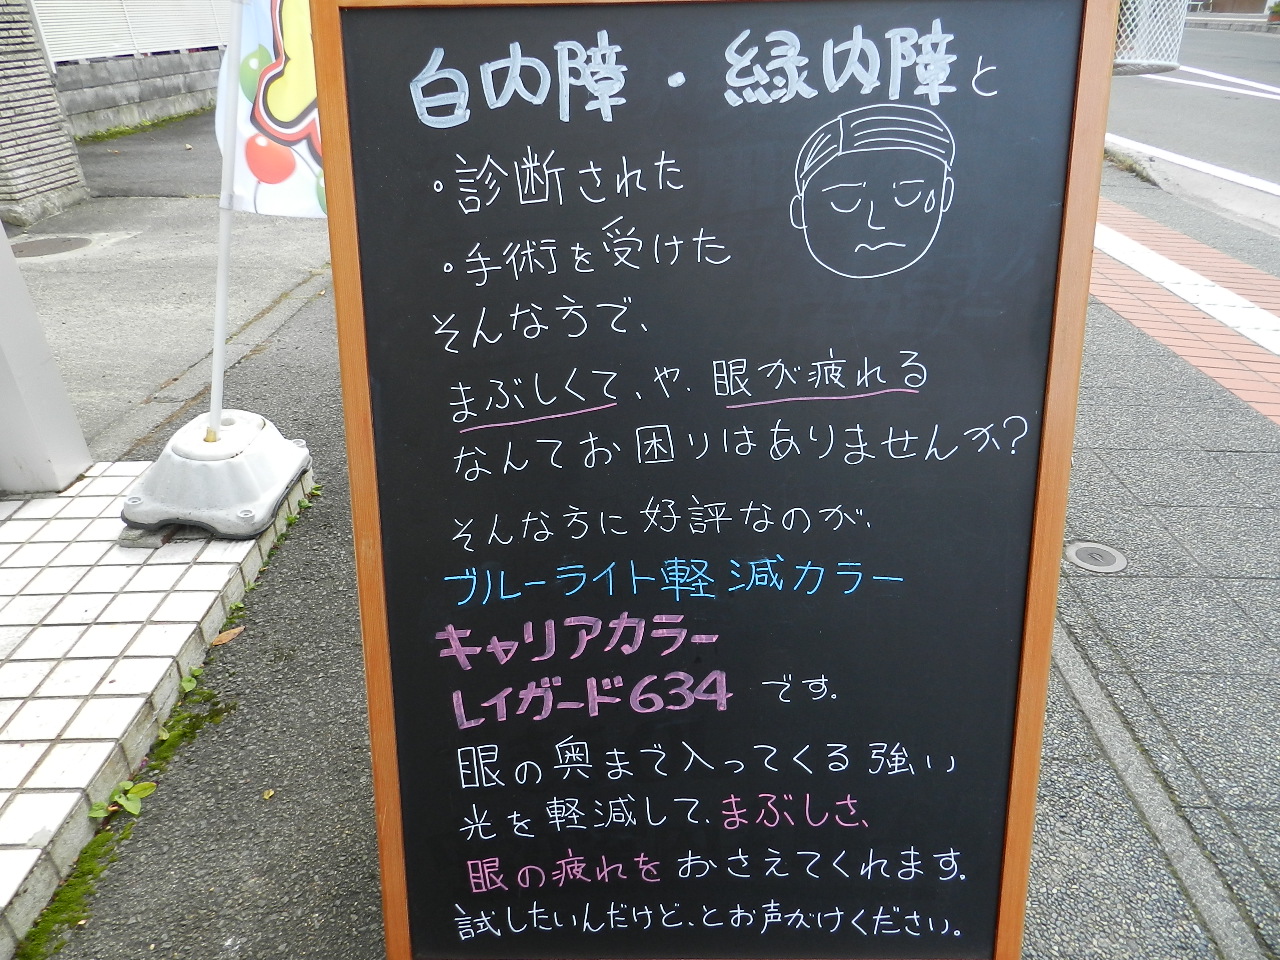 白内障・緑内障と
・診断された
・手術を受けた
そんな方で、
まぶしくて、や、眼が疲れる
なんてお困りはありませんか？
そんな方に好評なのが、
ブルーライト軽減カラー
キャリアカラー
レイガード634 です。
眼の奥まで入ってくる強い
光を軽減して、まぶしさ、
眼の疲れをおさえてくれます。
試したいんだけど、とお声がけください。